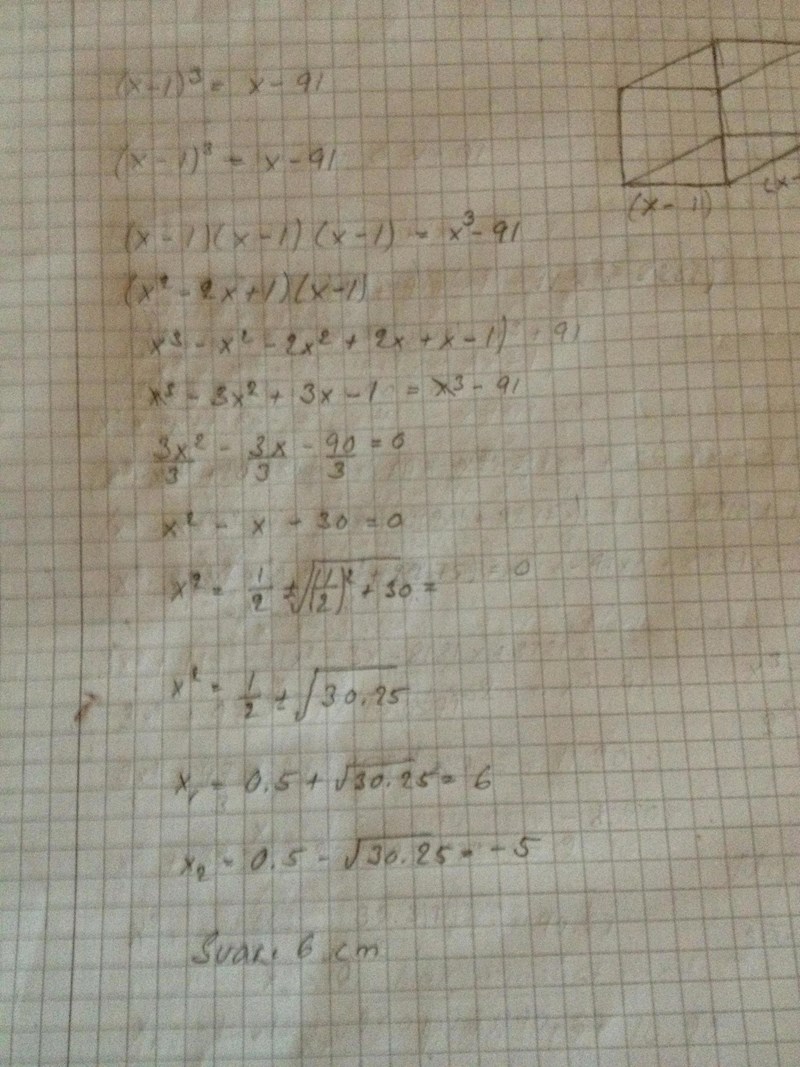 (x-1)³ = x - 91
(x-1)³ = x - 91
(x-1)(x-1)(x-1) = x³-91
(x² - 2x+1)(x-1)
x³ - x² - 2x² + 2x + x - 1) 91
x³ - 3x² + 3x - 1 = x³ - 91
3x²/3 - 3x/3 - 90/3 = 0
x² - x - 30 = 0
x² = 1/2 ± √(1/2)² + 30 =
x² = 1/2 ± √30.25
x₁ = 0.5 + √30.25 = 6
x₂ = 0.5 - √30.25 = -5
Svar: 6 cm
(x-1)
(x-